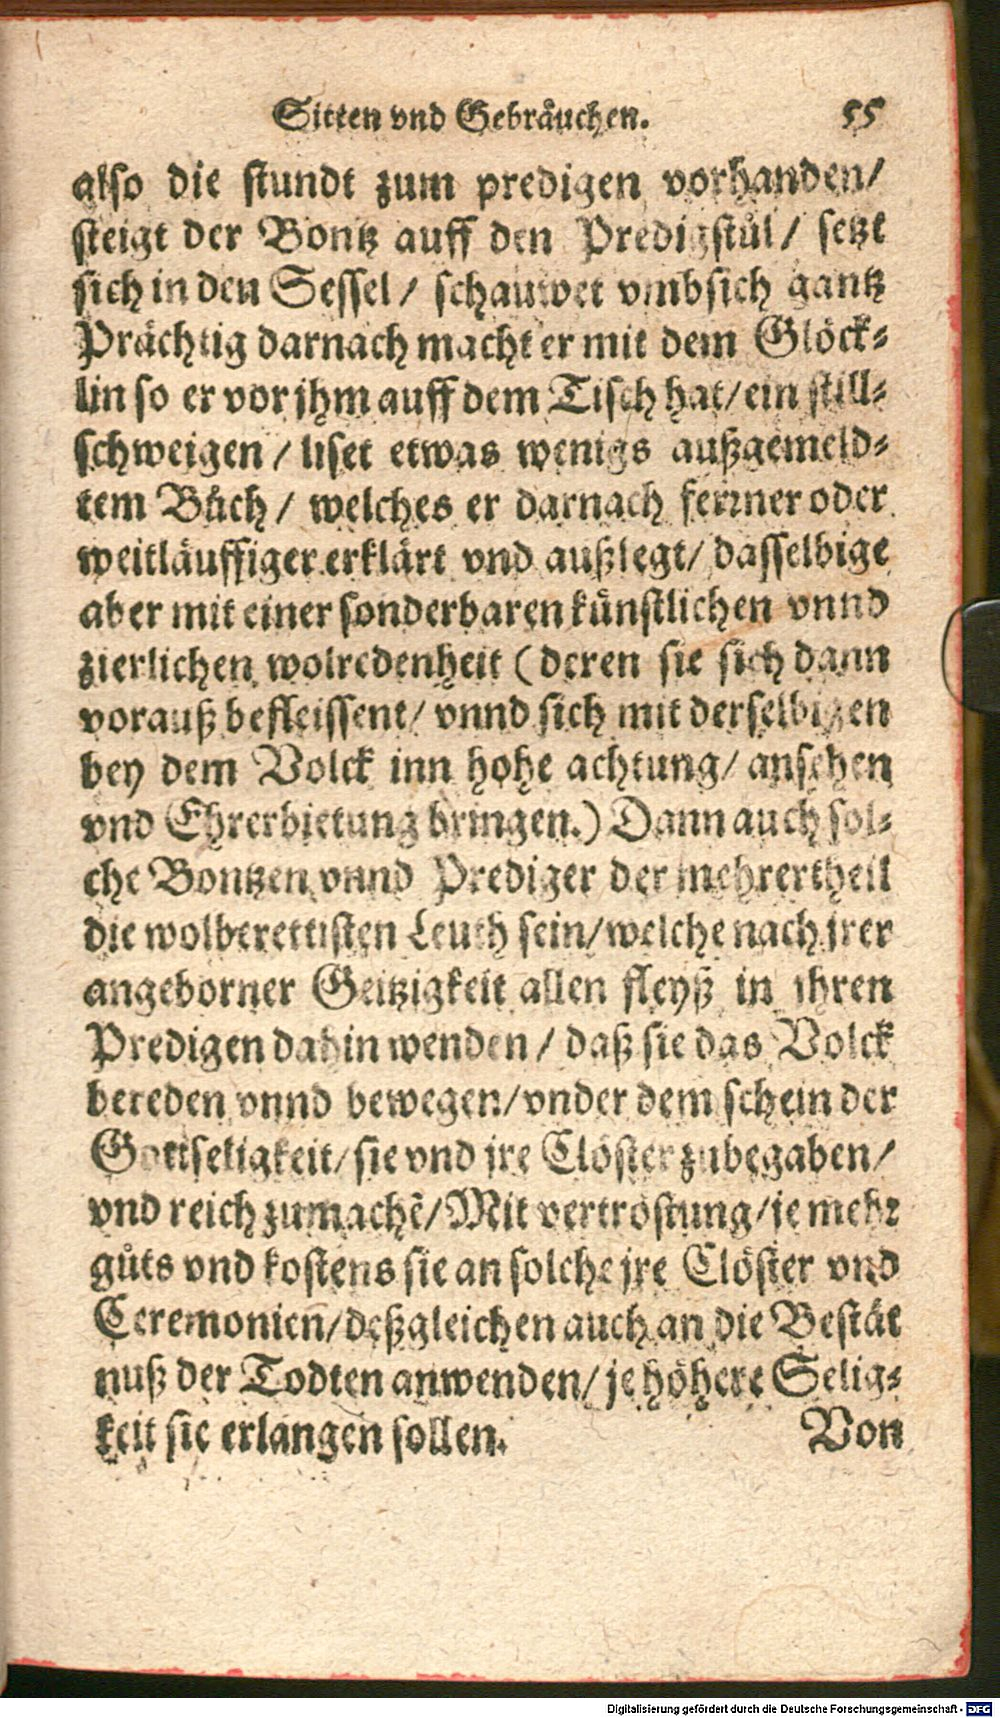 Sitten vnd Gebräuchen. 55
also die stundt zum predigen vorhanden/
steigt der Bontz auff den Predigstůl/ setzt
sich in den Sessel/ schauwet vmbsich gantz
Prächtig darnach macht er mit dem Glöck-
lin so er vor jhm auff dem Tisch hat/ ein still-
schweigen/ liset etwas wenigs außgemeld-
tem Bůch/ welches er darnach ferrner oder
weitläuffiger erklärt vnd außlegt/ dasselbige
aber mit einer sonderbaren künstlichen vnnd
zierlichen wolredenheit (deren sie sich dann
vorauß befleissent/ vnnd sich mit derselbigen
bey dem Volck inn hohe achtung/ ansehen
vnd Ehrerbietung bringen.) Dann auch sol-
che Bontzen vnnd Prediger der mehrertheil
die wolberettisten Leuth sein/ welche nach jrer
angeborner Geitzigkeit allen fleyß in ihren
Predigen dahin wenden/ daß sie das Volck
bereden vnnd bewegen/ vnder dem schein der
Gottseligkeit/ sie vnd jre Clöster zubegaben/
vnd reich zumachē/ Mit vertröstung/ je mehr
gůts vnd kostens sie an solche jre Clöster vnd
Ceremonien/ deßgleichen auch an die Bestät
nuß der Todten anwenden/ je höhere Selig-
keit sie erlangen sollen. Von
Digitalisierung gefördert durch die Deutsche Forschungsgemeinschaft - DFG